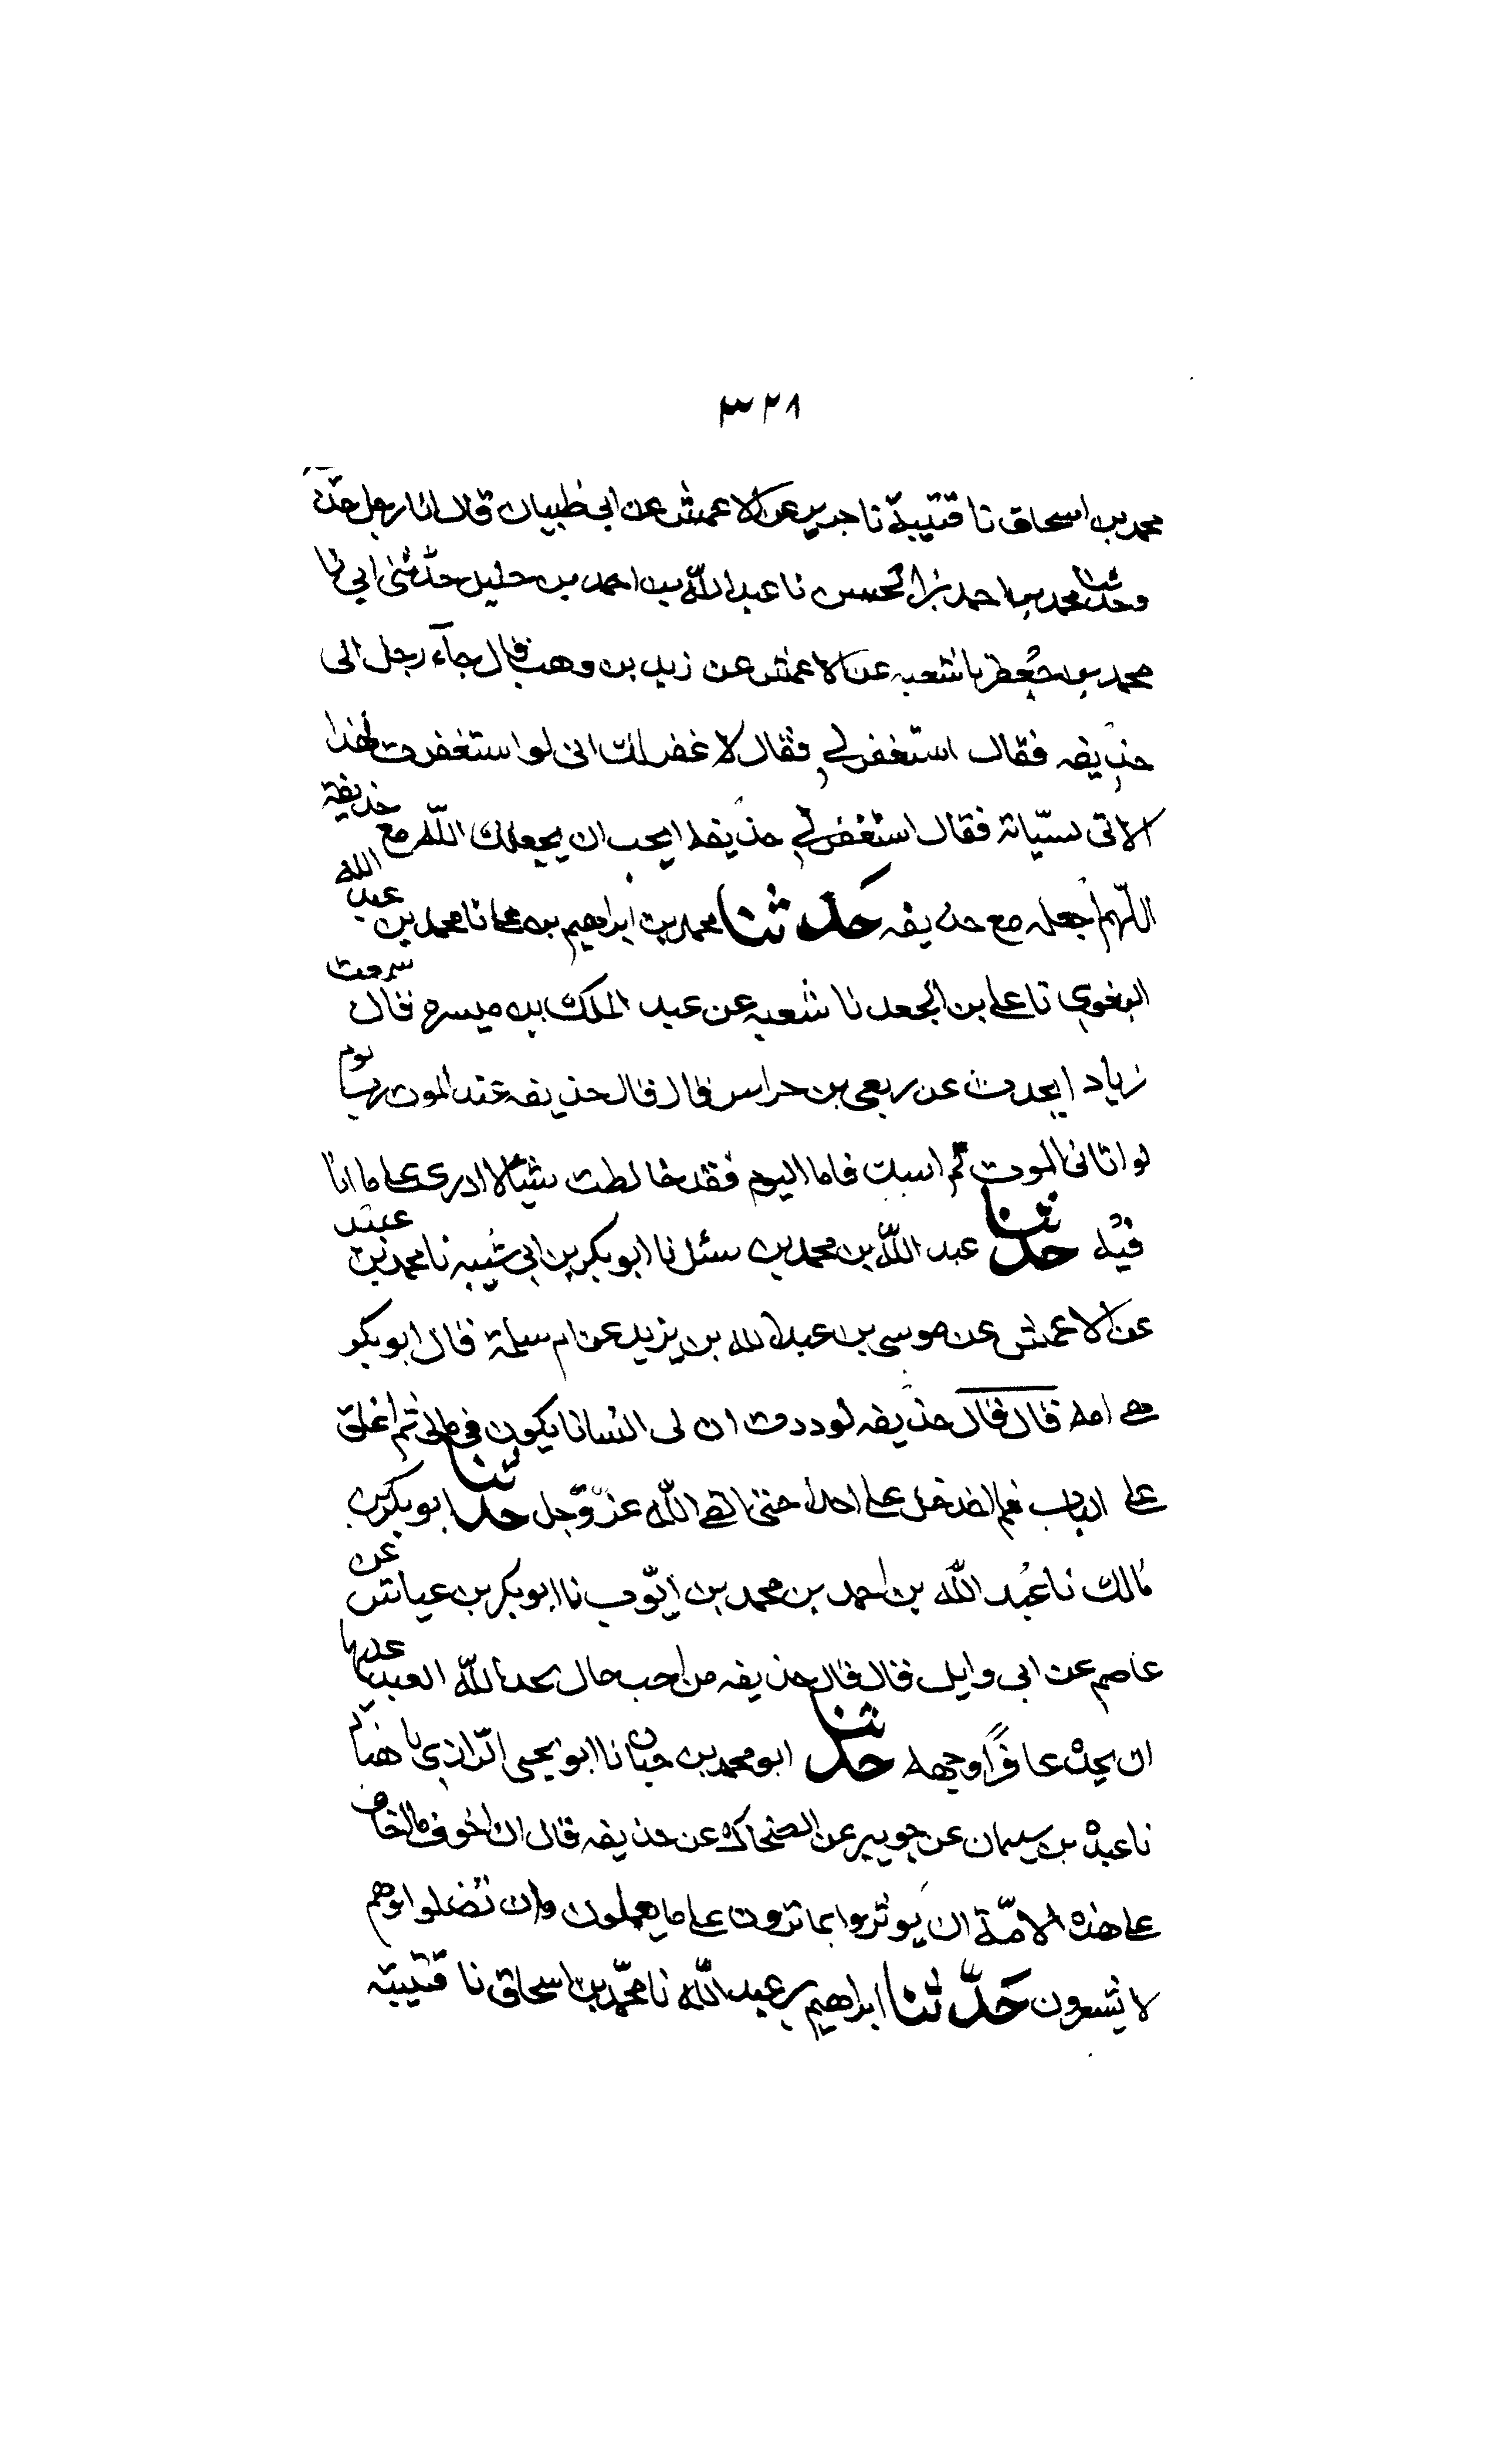 ٣٢٨
محمد بن اسحاق نا قتيبة نا جرير عن الاعمش عن ابي ظبيان قال اتا رجل حذ
وحدثنا محمد بن احمد بن الحسن نا عبد الله بن احمد بن حليل حدثنى ابي نا
محمد بن جعفر نا شعبه عن الاعمش عن زيد بن وهب قال جآء رجل الى
حذيفه فقال استغفر لي فقال لا غفر لك انى لو استغفرت لهذا
لاتى نسيّاته فقال استغفر لي حذيفه ايحب ان يجعلك الله مع حذيفة
اللّهم اجعله مع حذيفه حَدثنا محمد بن ابراهيم بن نا محمد بن عبد الله
البغوي نا على بن الجعد نا شعبه عن عبد الملك بن ميسره قال سمعت
زياد ايحدث عن ربعى بن حراس قال قال حذيفه عند الموت ربّ يوم
لو اتانى الموت لم اسبك فاما اليوم فقد خالطت شيئًا لا ادرى على ما انا
فيه حدثنا عبد اللّه بن محمد بن سئل نا ابو بكر بن ابي شيبه نا محمد بن عبيد
عن الاعمش عن موسى بن عبد الله بن يزيد عن ام سلمة قال ابو بكر
هى امه قال قال حذيفه لوددت ان لى انسانا يكون فى مالى ثم اغلق
على الباب فلم ادخل على احدا حتى القى اللّه عزّ وجل حدثنا ابو بكر بن
مالك نا عبد اللّه بن احمد بن محمد بن ايّوب نا ابو بكر بن عياش عن
عاصم عن ابى وايل قال قال حذيفه من احب حال يحد اللّه العبد عليها
ان يجده عافرًا وجهه حدثنا ابو محمد بن حيان نا ابو يحيى الرّازي نا هنّاد
نا عبدة بن سيمان عن جويبر عن الضحاك عن حذيفه قال ان اخوف ما اخاف
على هذه الامّة ان يوثروا بما ترون على ما يعملون وان تضلوا وهم
لا يشعرون حَدّثنا ابراهيم بن عبد اللّه نا محمّد بن اسحاق نا قتيبة